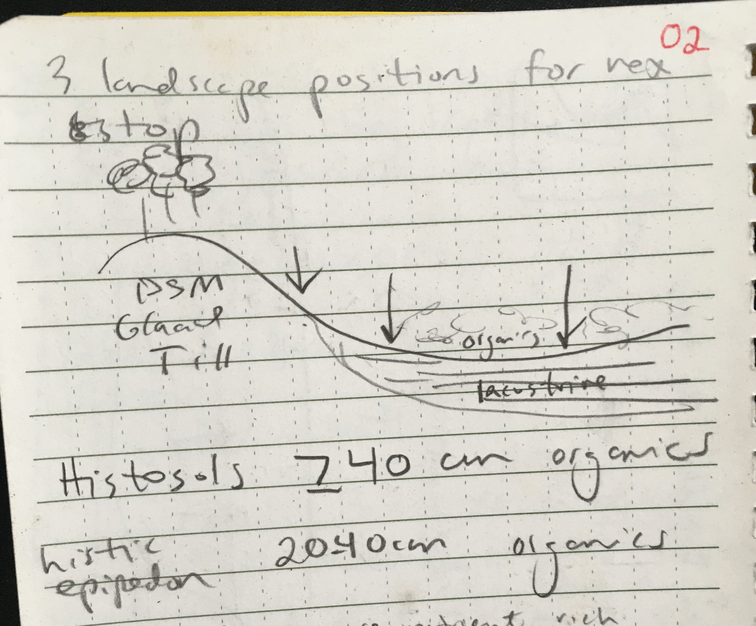 02
3 landscape positions for rex
stop
DSM
Glacial
Till
organics
lacustrine
Histosols ≥40 cm organics
histic 20-40cm organics
epipedon
rich